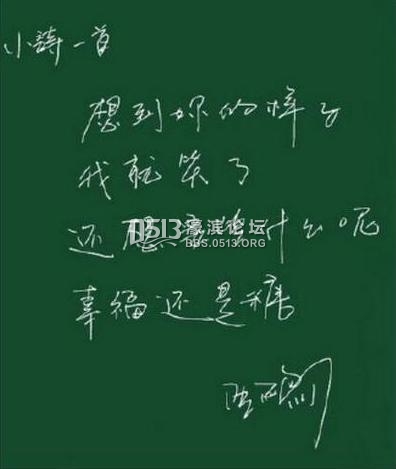 小詩一首
想到妳的样子
我就笑了
还想什么呢
0513濠滨论坛
BBS.0513.ORG
幸福还是糖